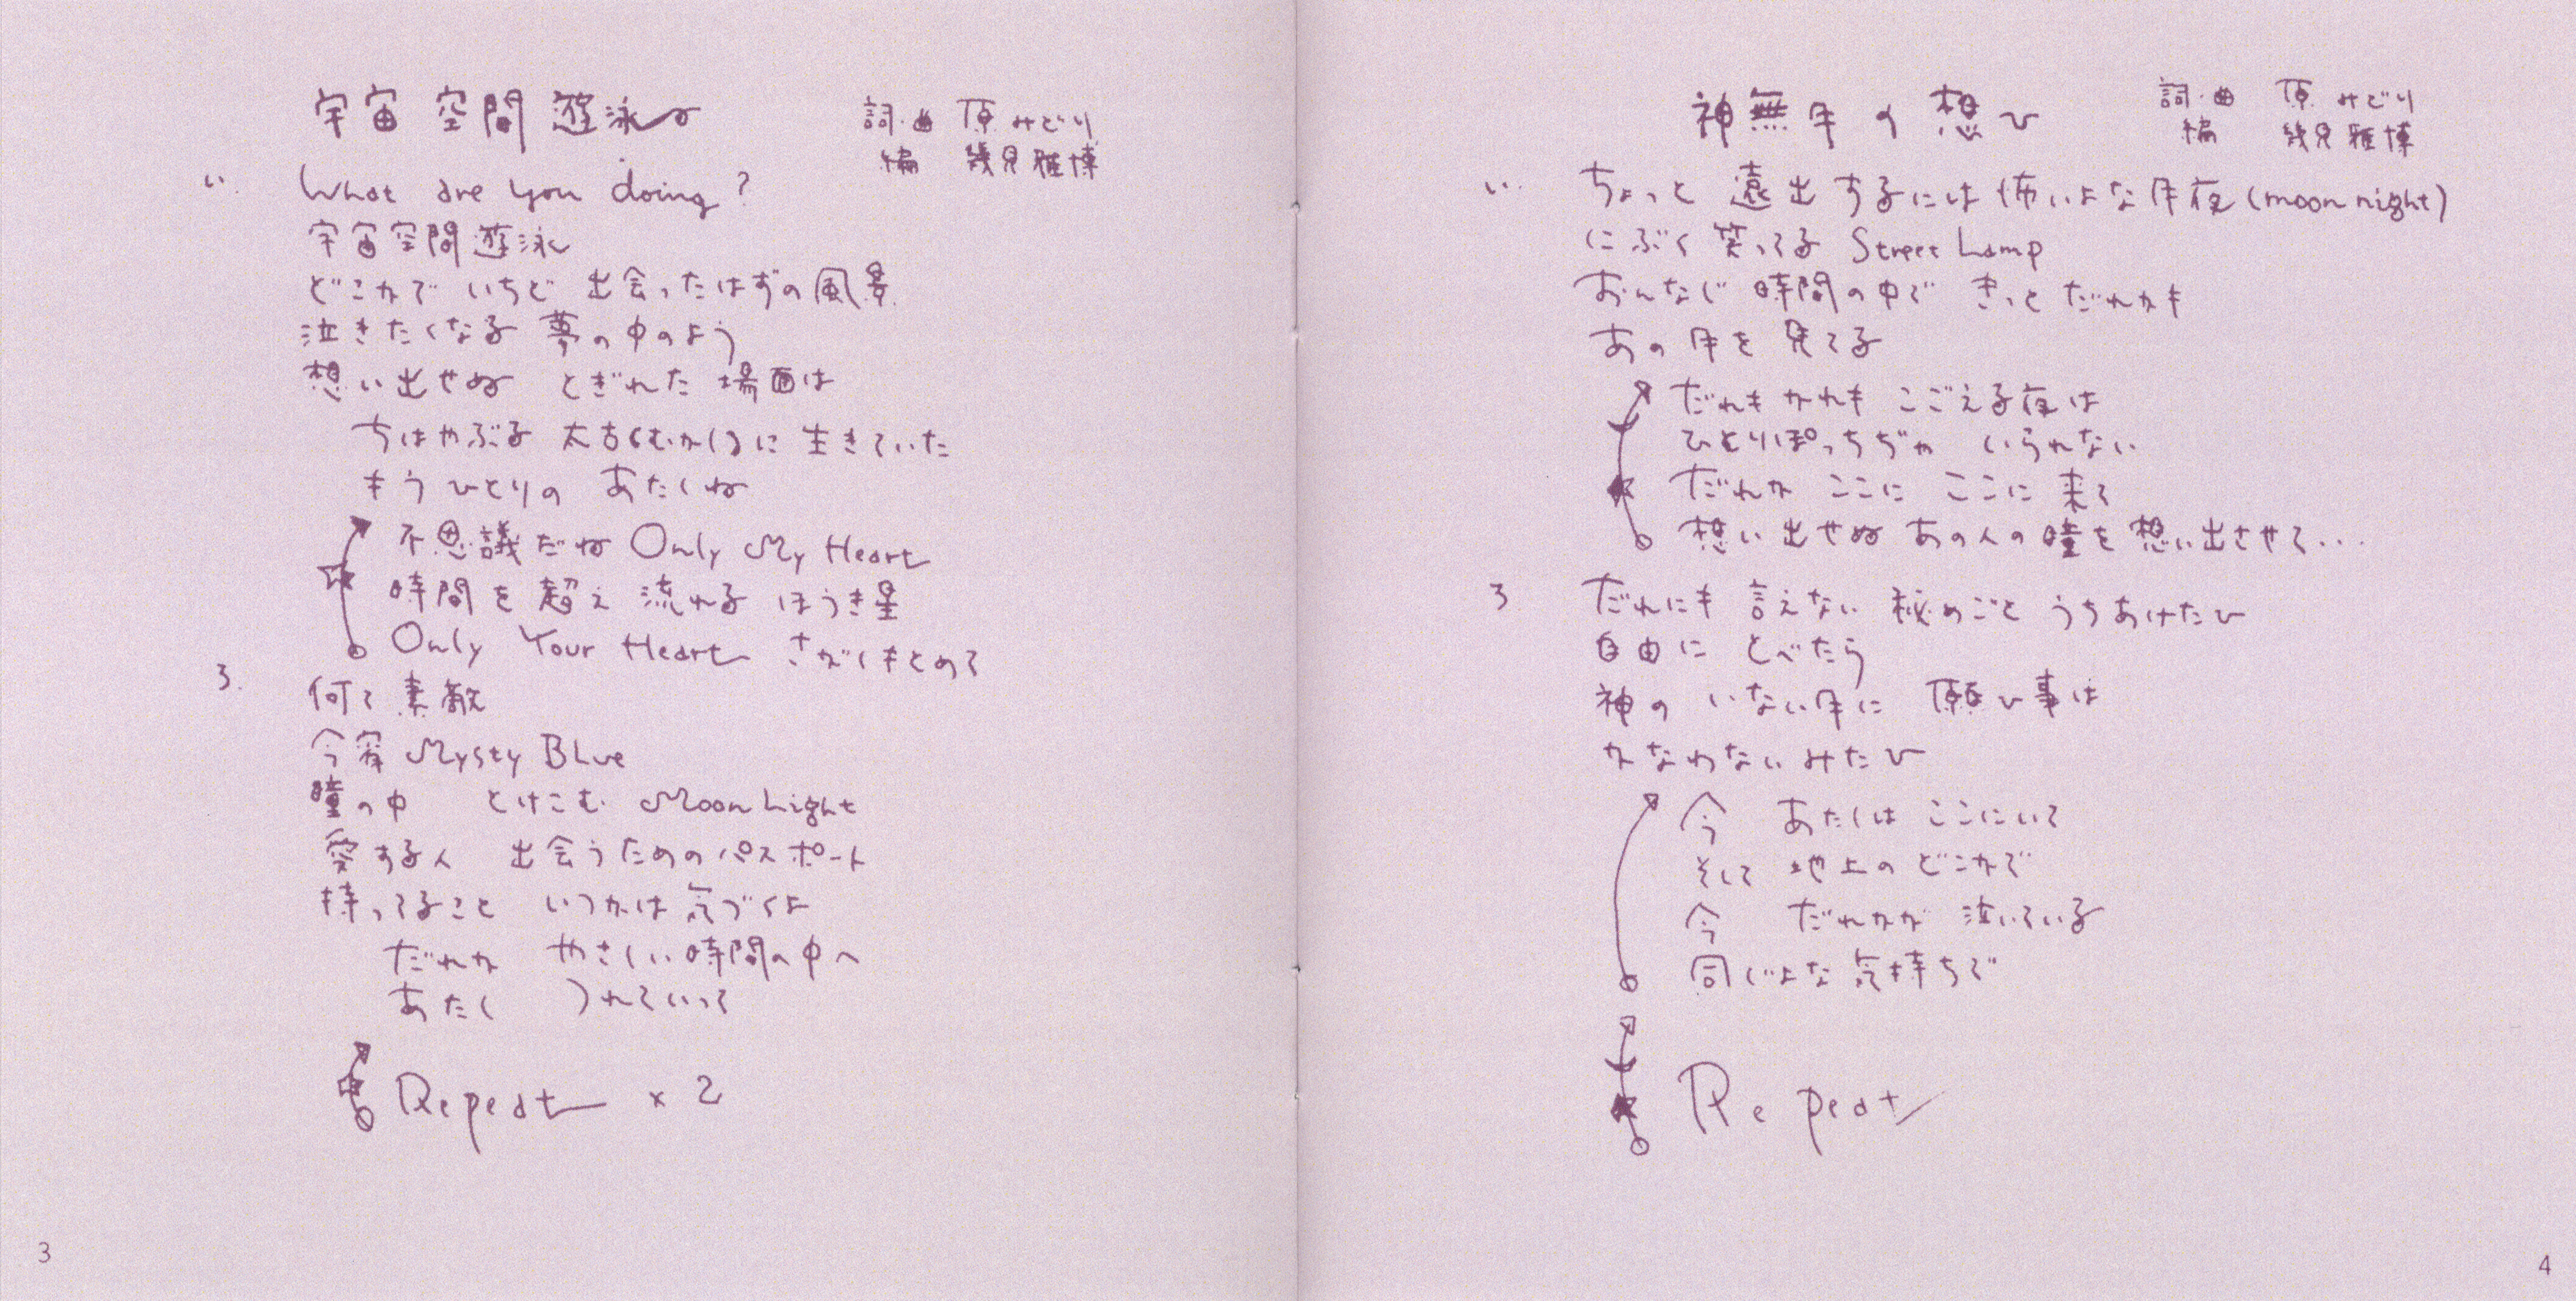 宇宙空間遊泳
詞・曲 原みどり
編 幾見雅博
い. What are you doing?
宇宙空間遊泳
どこかで いちど 出会ったはずの風景
泣きたくなる 夢の中のよう
想い出せぬ とぎれた 場面は
ちはやぶる 太古(むかし)に 生きていた
もうひとりの あたしね
不思議だね Only My Heart
時間を 超え 流れる ほうき星
Only Your Heart さがしもとめて
ろ. 何て素敵
今宵 Mysty Blue
瞳の中 とけこむ Moon Light
愛する人 出会うためのパスポート
持ってること いつかは気づくよ
だれか やさしい時間の中へ
あたし つれていって
Repeat × 2
3
神無月の想ひ
詞・曲 原みどり
編 幾見雅博
い. ちょっと 遠出するには怖いよな月夜(moon night)
にぶく 笑ってる Street Lamp
おんなじ 時間の中で きっと だれかも
あの月を 見てる
だれもかれも こごえる夜は
ひとりぽっちぢゃ いられない
だれか ここに ここに 来て
想い出せぬ あの人の瞳を 想い出させて...
ろ だれにも 言えない 秘めごと うちあけたひ
自由に とべたら
神の いない月に 願ひ事は
かなわないみたひ
今 あたしは ここにいて
そして 地上の どこかで
今 だれかが 泣いている
同じよな気持ちで
Repeat
4